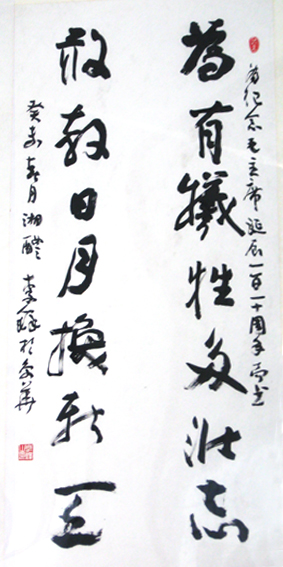 为纪念毛主席誕辰一百一十周年而书
為有犧牲多壯志
敢教日月換新天
癸未春月湘醴李鐸於京華